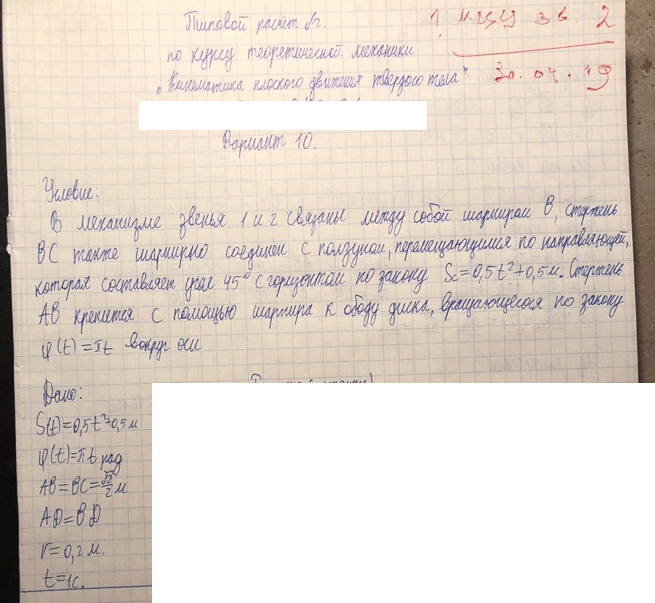 Типовой расчёт №2.
по курсу теоретической механики
„Кинематика плоского движения твёрдого тела"
30.04.19
Вариант 10.
Условие:
В механизме звенья 1 и 2 связаны между собой шарниром B, стержень
BC также шарнирно соединен с ползуном, перемещающимся по направляющей,
которая составляет угол 45° с горизонтом по закону Sc=0,5t²+0,5м. Стержень
AB крепится с помощью шарнира к ободу диска, вращающегося по закону
φ(t)=πt вокруг оси
Дано:
S(t)=0,5t²+0,5м
φ(t)=πt рад
AB=BC=√2/2 м
AD=BD
r=0,2м.
t=1с.